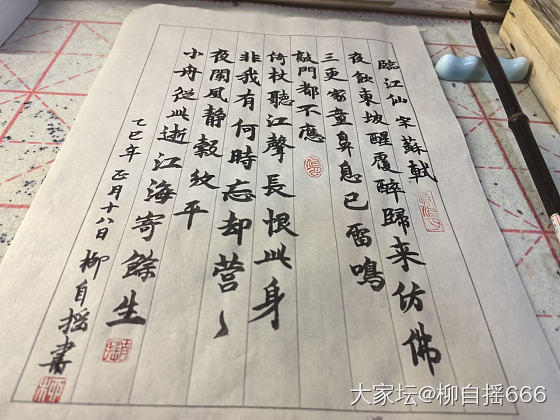 臨江仙 宋 蘇軾
夜飲東坡醒復醉歸来仿佛
三更家童鼻息已雷鳴
敲門都不應
倚杖聽江聲長恨此身
非我有何時忘却营〻
夜闌風静縠紋平
小舟從此逝江海寄餘生
乙巳年 正月十八日 柳自摇書
大家坛@柳自摇666